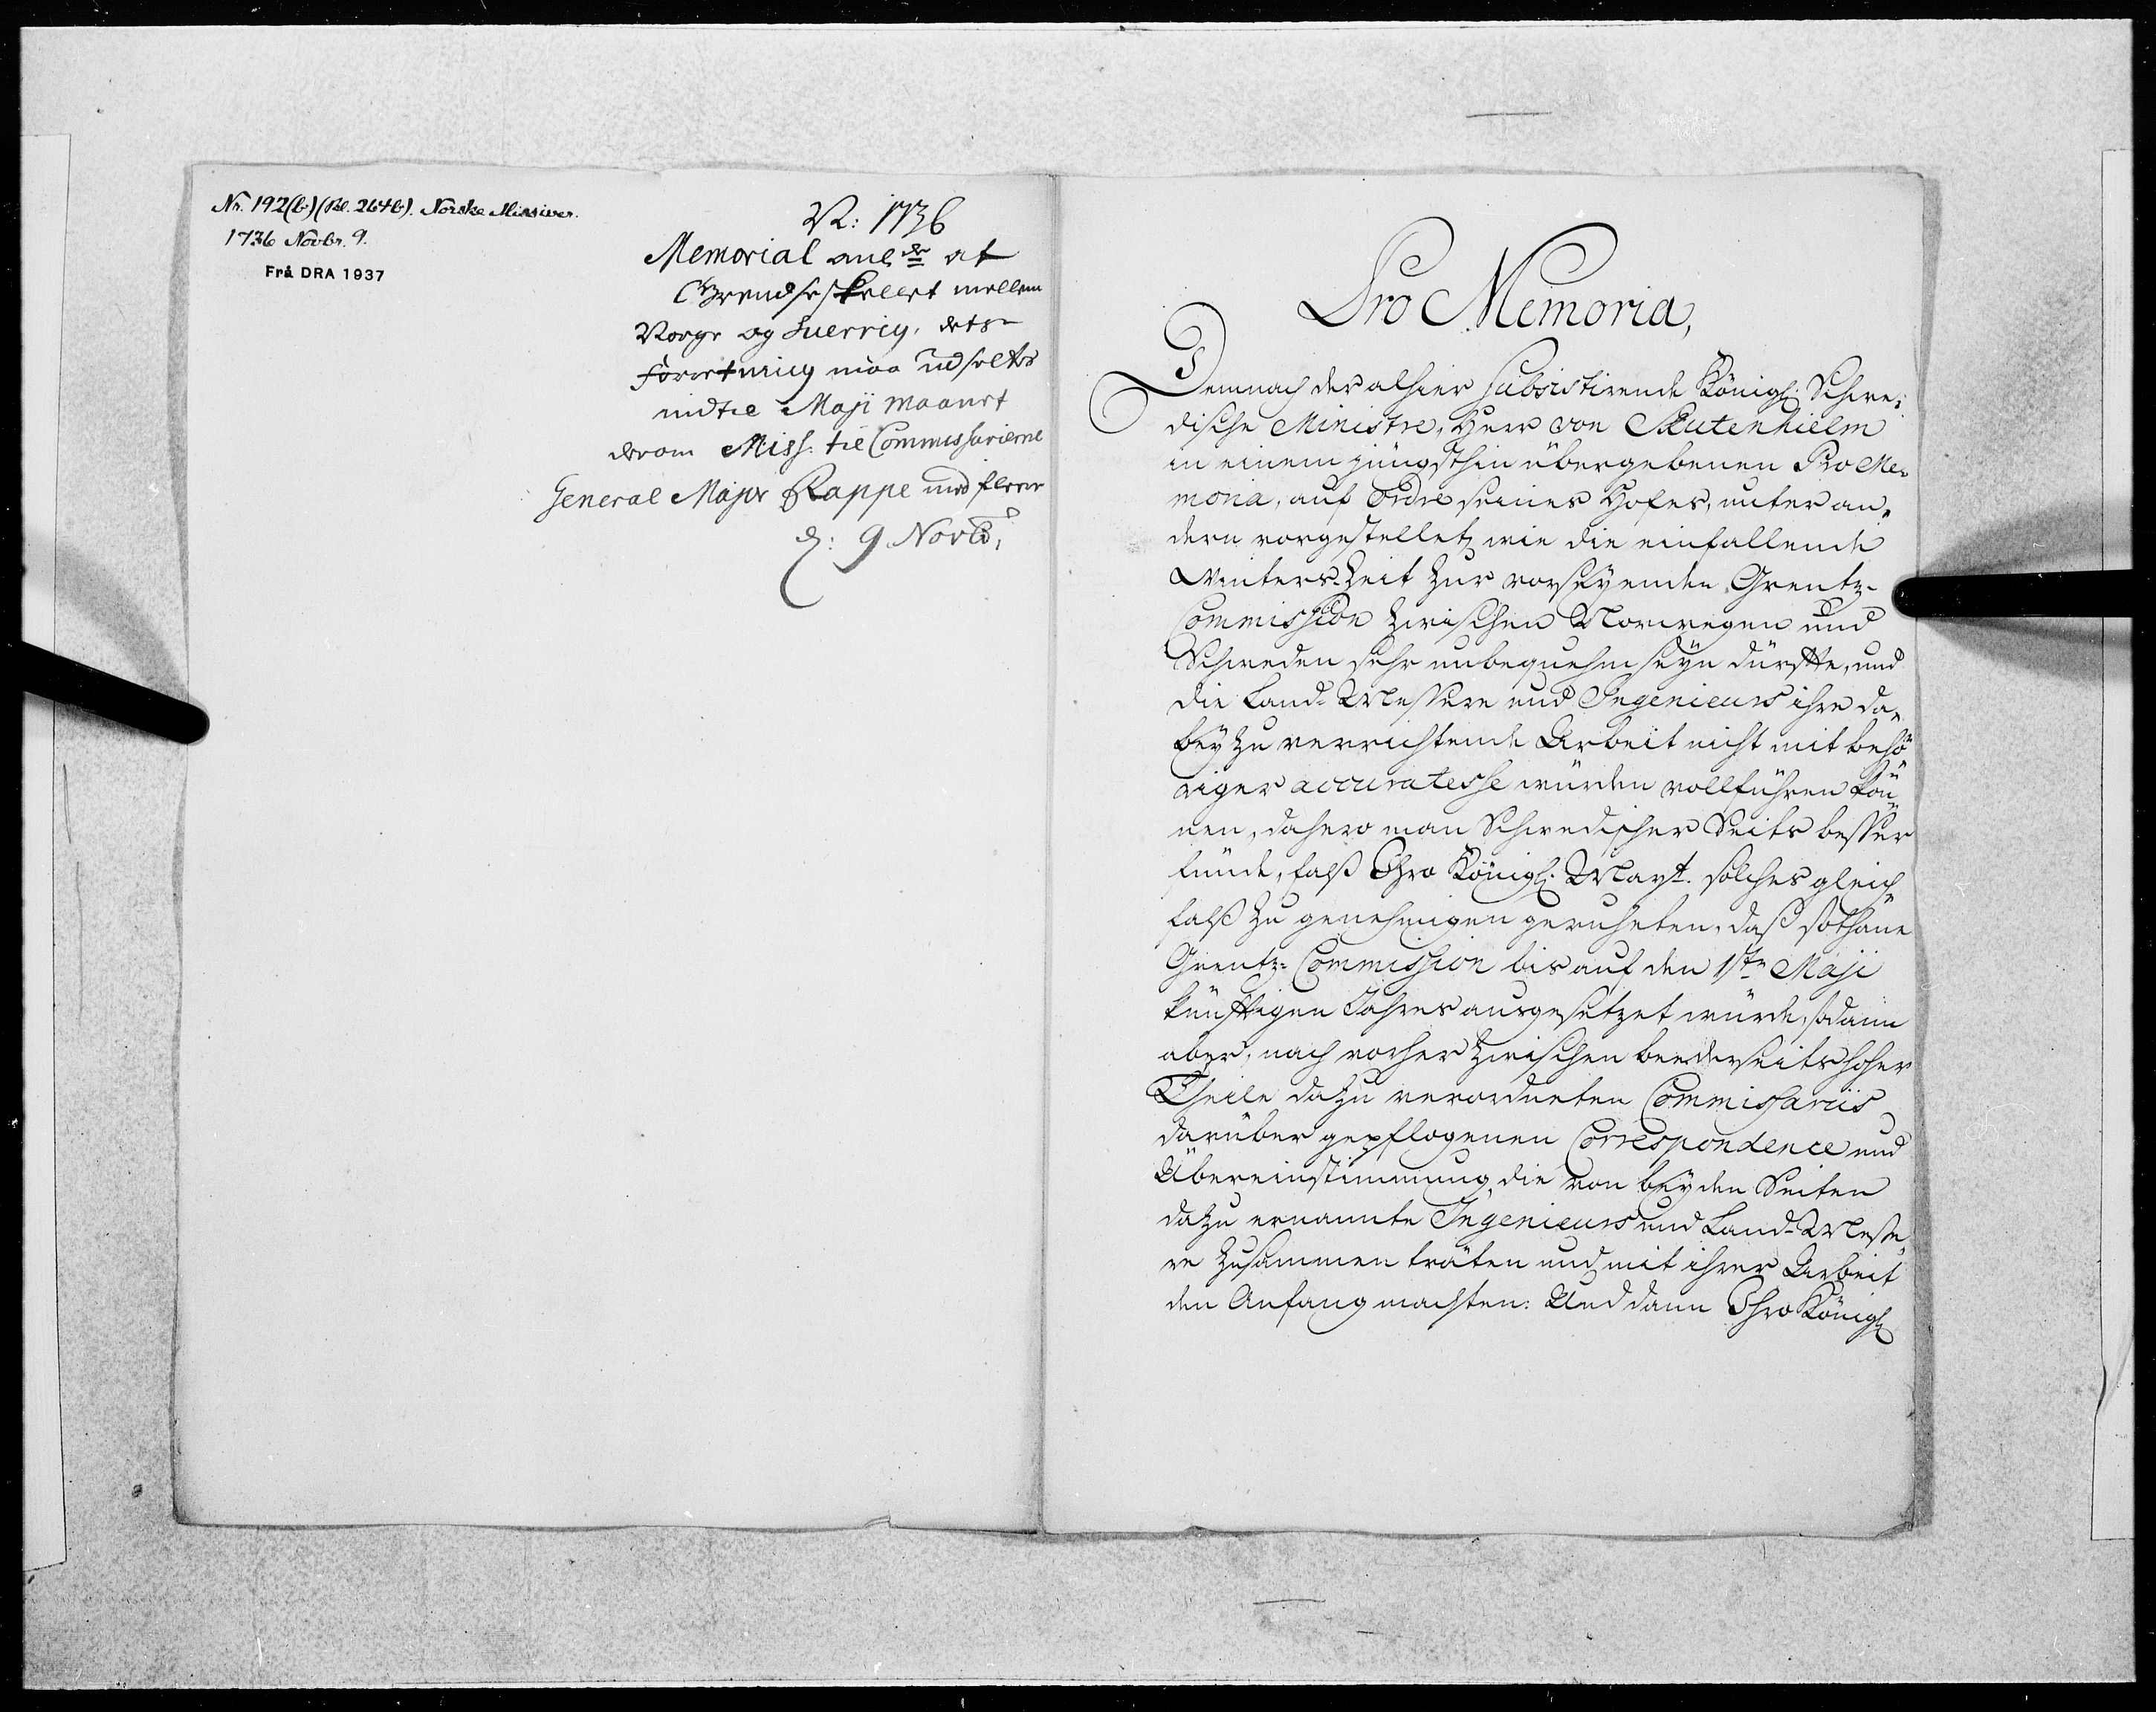 Nr. 192(b) (Bl. 264b). Norske Missiver.
1736 Novbr. 9.
Frå DRA 1937
N: 1736
Memorial anl:de at
Grendseskellet mellem
Norge og Suerrig, dets
Foretning maa udsettes
indtil Maji Maanet
derom Miss: til Commissarierne
General Major Rappe med fleere
d: 9 Novb:
Pro Memoria,
Demnach der alhier subsistirende Königl: Schwe-
dische Ministre, Herr von Skutenhielm
in einem jüngsthin übergebenen Pro Me-
moria, auf Ordre seines Hofes, unter an-
dern vorgestellet, wie die einfallende
Winters-Zeit zur vorseyenden Grentz-
Commission zwischen Norwegen und
Schweden sehr unbequehm seyn dürffte, und
die Land-Messere und Ingenieurs ihre da-
bey zu verrichtende Arbeit nicht mit behö-
riger accuratesse würden vollführen kön-
nen, dahero man Schwedischer Seits besser
fünde, falß Ihro Königl. Mayt. solches gleich-
falß zu genehmigen geruheten, daß sothane
Grentz-Commission bis auf den 1sten Maji
künfftigen Jahres ausgesetzet würde, sodann
aber, nach vorher zwischen beederseits hoher
Theile dazu verordneten Commissariis
darüber gepflogenen Correspondence und
Übereinstimmung, die von beyden Seiten
dazu ernannte Ingenieurs und Land-Messe-
re zusammen träten und mit ihrer Arbeit
den Anfang machten: Und dann Ihro Königl: